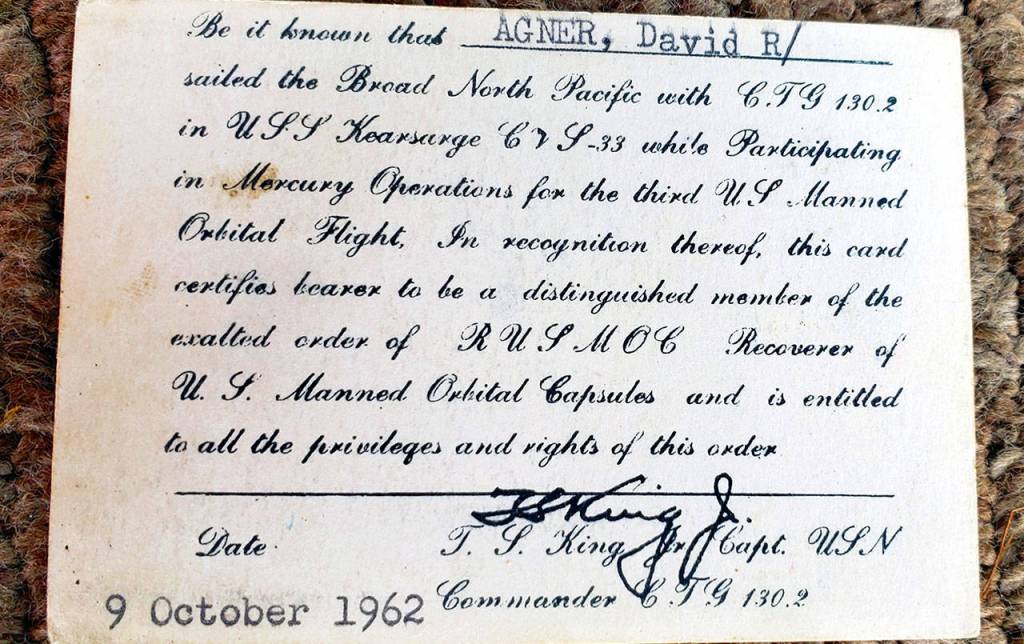 Be it known that AGNER, David R/
sailed the Broad North Pacific with C.T.G 130.2
in U.S.S Kearsarge C V S-33 while Participating
in Mercury Operations for the third U S Manned
Orbital Flight. In recognition thereof, this card
certifies bearer to be a distinguished member of the
exalted order of R U S M O C Recoverer of
U. S. Manned Orbital Capsules and is entitled
to all the privileges and rights of this order
T S King Jr.
Date T. S. King Jr Capt. USN
9 October 1962 Commander C T G 130.2